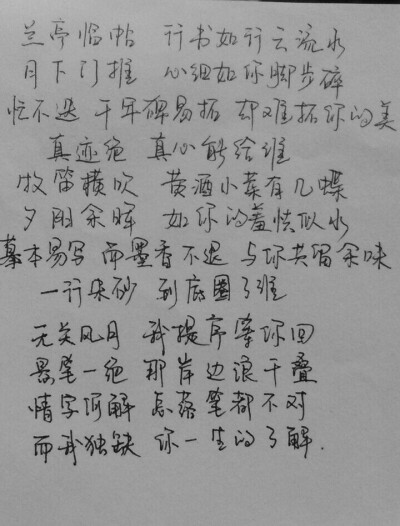 兰亭临帖 行书如行云流水
月下门推 心细如你脚步碎
忙不迭 千年碑易拓 却难拓你的美
真迹绝 真心能给谁
牧笛横吹 黄酒小菜有几蝶
夕阳余晖 如你的羞怯似水
摹本易写 而墨香不退 与你共留余味
一行朱砂 到底圈了谁
无关风月 我提序等你回
悬笔一绝 那岸边浪千叠
情字何解 怎落笔都不对
而我独缺 你一生的了解.